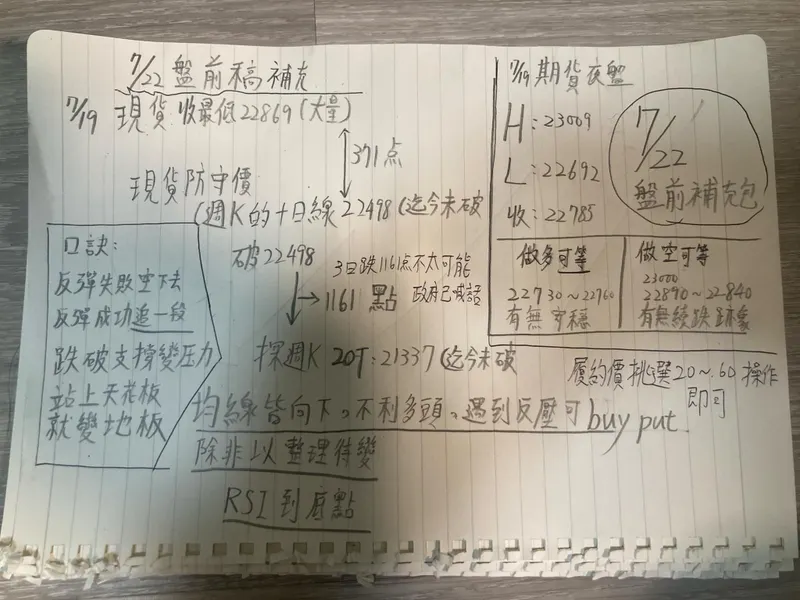 7/22 盤前稿補充
7/19 現貨 收最低22869(大量)
371点
現貨防守價
(週K的十日線 22498 (迄今未破
破22498
1161 點
3日跌1161点不太可能
政府已喊話
探週K 20T:21337 (迄今未破
均線皆向下，不利多頭，遇到反壓可buy put.
除非以整理待變
RSI到底點
口訣:
反彈失敗空下去
反彈成功追一段
跌破支撐變壓力
站上天花板
就變地板
7/19 期貨夜盤
H:23009
L:22692
收:22785
7/22
盤前補充包
做多可等
22730~22760
有無守穩
做空可等
23000
22890~22840
有無續跌跡象
履約價挑選20~60操作
即可